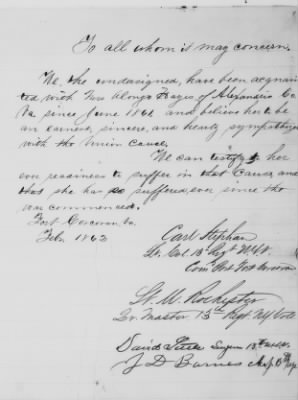 To all whom it may concern.
We, the undasigned, have been acquain
ted with Mrs Alonzo Hayes of Alexandria Co
Va since June 1861 and believe her to be
an earnest, sincere, and hearty sympathizer
with the Union Cause.
We can testify to her
own readiness to suffer in that Cause, and
that she has so suffered, ever since the
war commenced.
Fort Corcoran, Va.
Feby 1863
Carl Stephan
Lt. Col. 13th Regt
Com
Rochester
Qr. Master 13th Regt. NY Vols
David
J D Barnes